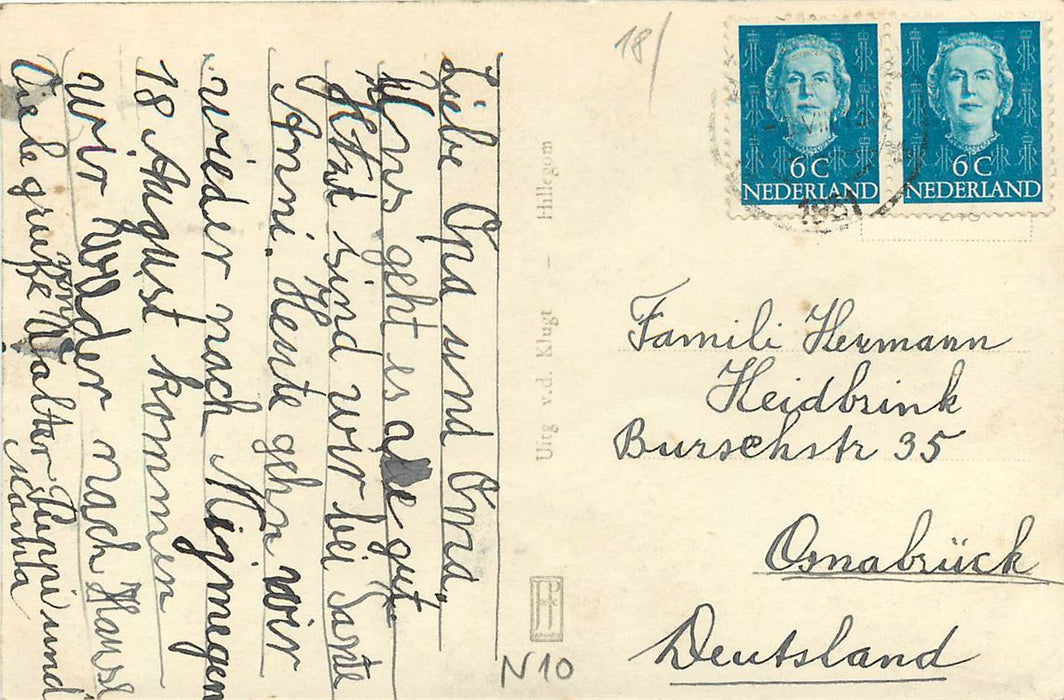 Liebe Opa und Oma,
Uns geht es alle gut
Jetzt sind wir bei Tante
Anni. Heute gehn wir
wieder nach Nijmegen
18 August kommen
wir wieder nach Hause
Viele grüße von Walter Puppi und
Uitg v.d. Klugt - Hillegom
N10
18/
6C
NEDERLAND
6C
NEDERLAND
Famili Hermann
Heidbrink
Burschstr 35
Osnabrück
Deutsland